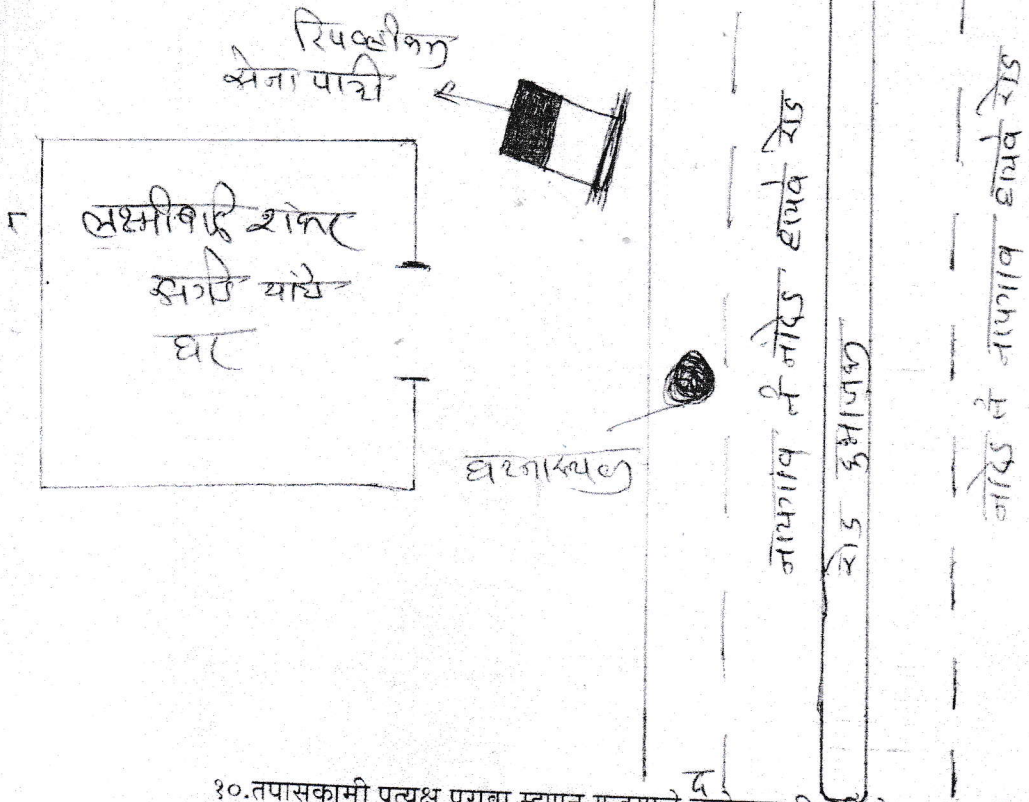 रिपब्लीकन
सेना पार्टी
लक्ष्मीबाई शंकर
यांचे
घर
घटनास्थळ
नायगाव ते नांदेड हायवे रोड
रोड दुभाजक
नांदेड ते नायगाव हायवे रोड
द
१०.तपासकामी प्रत्यक्ष पुरावा म्हणून